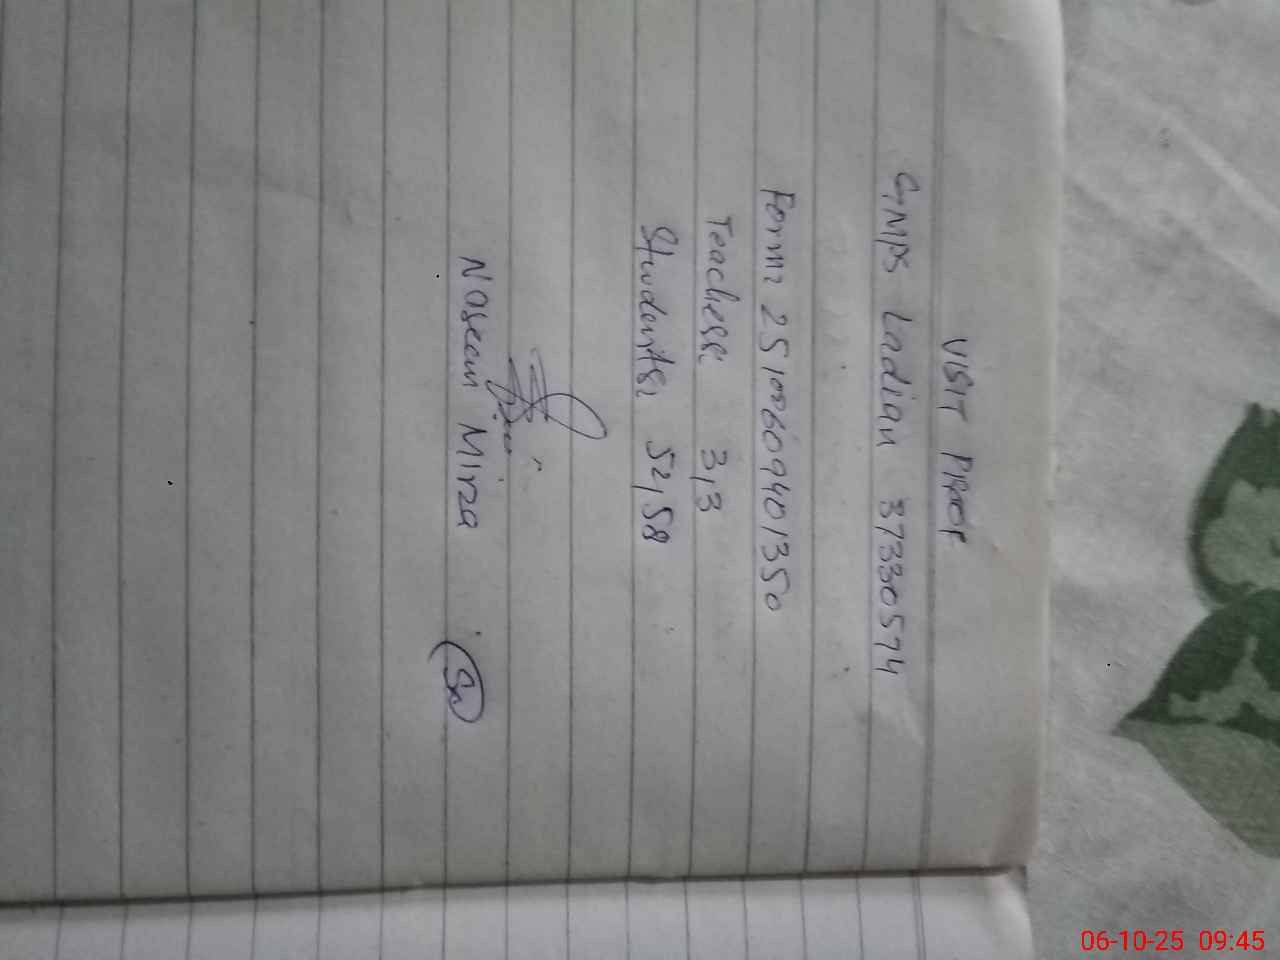 VISIT PROOF
GMPS Ladian 37330574
Form: 25100609401350
Teachers: 3,3
Students: 52,58
Naseem Mirza
06-10-25 09:45